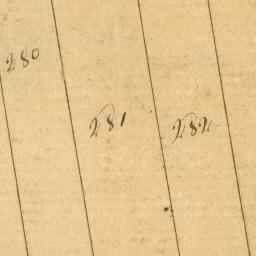 280
281
282